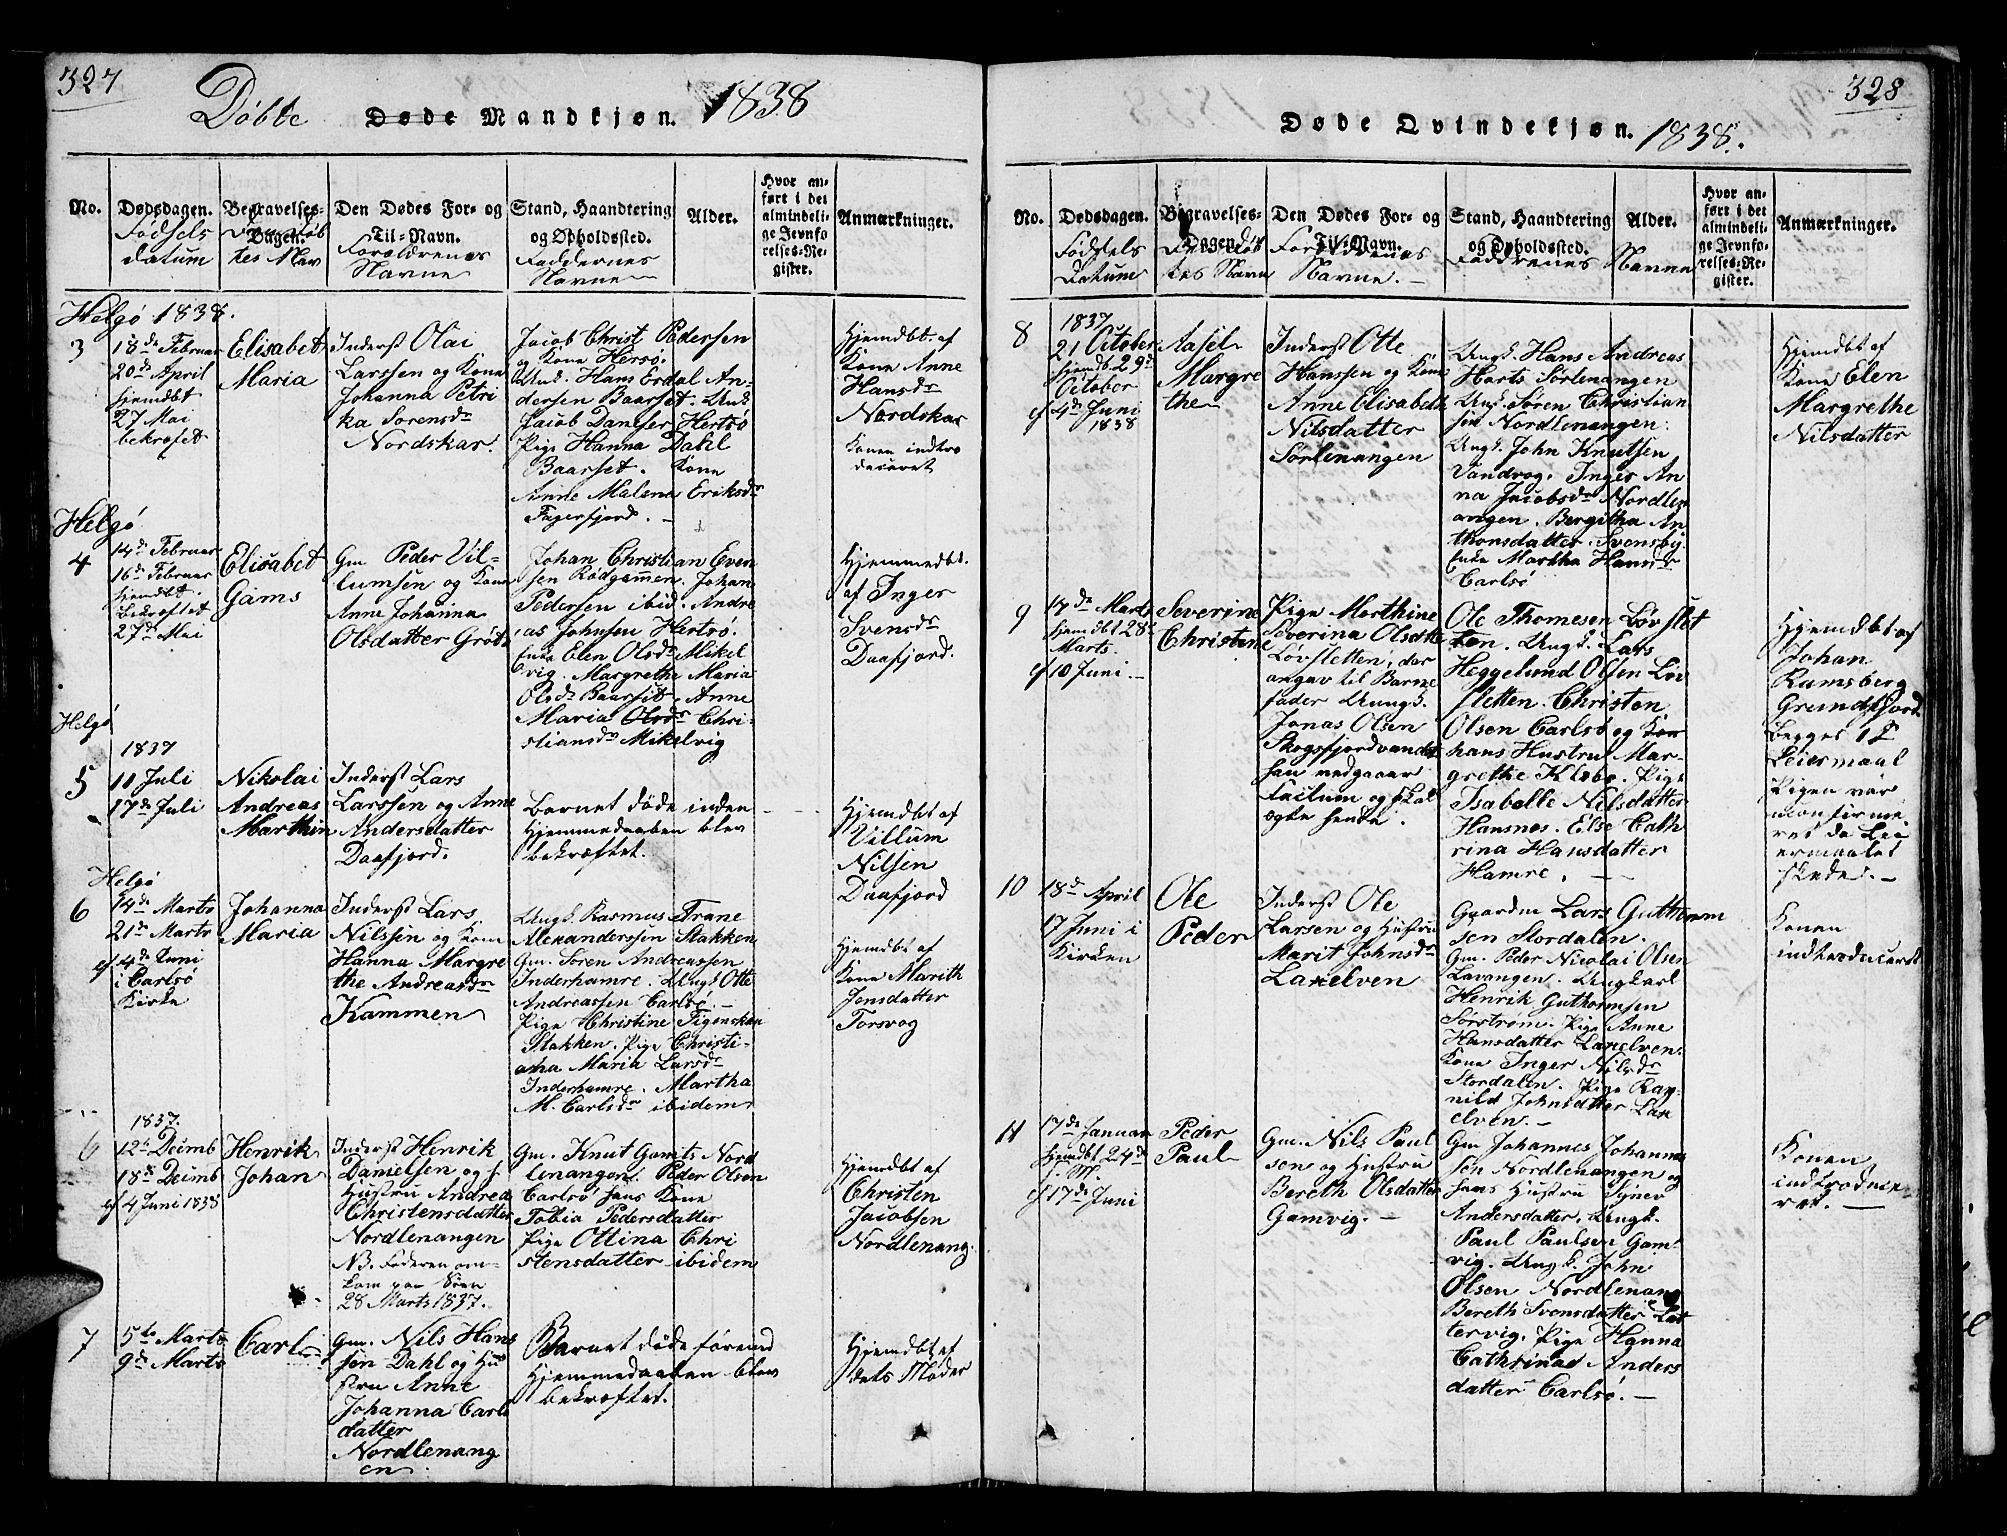 327
Døbte Døde Mandkjøn. 1838
No.
Dødsdagen.
Fødsels
datum
Begravelses-
Dagen.
Den Dødes For- og
Til-Navn.
Forældrenes
Navne
Stand, Haandtering
og Opholdssted.
Faddernes
Navne
Alder.
Hvor an-
ført i det
almindeli-
ge Jevnfø
relses-Re-
gister.
Anmærkninger.
Helgø 1838.
3
18de Februar
20de April
hjemdbt
27 Mai
bekræftet
Elisabet
Maria
Inderst Olai
Larssen og Kone
Johanna Petri
ka Sørensdr
Nordskar.
Jacob Christ Pedersen
og Kone Hersø.
Ung. Hans Erdal An-
dersen Baarset. Ung
Jacob Danielsen Hertsø
Pige Hanna Dahl
Baarset. Kone
Anne Malena Eriksdr
Fagerfjord.
Hjemdbt. af
Kone Anne
Hansdr
Nordskar
Konen intro
duceret
Helgø
4
14de Februar
16de Februar
hjemdbt.
bekræftet
27de Mai
Elisabet
Gams
Gm Peder Vil-
lumsen og Kone
Anne Johanna
Olsdatter Grøt
Johan Christian Even
sen Rødgammen. Johan
Pedersen ibid. Andre
as Johnsen Hertsø.
Enke Elen Olsdr Mikel
vig. Margrethe Maria
Olsdr Baarset. Anne
Maria Olsdr Chri-
stiansdr Mikelvig
Hjemmedbt.
af Inger
Svensdr
Daafjord.
Helgø
1837
5
11 Juli
17de Juli
Nikolai
Andreas
Marthin
Inderst Lars
Larssen og Anne
Andersdatter
Daafjord.
Barnet døde inden
Hjemmedaaben blev
bekræftet.
Hjemdbt af
Villum
Nilsen
Daafjord
Helgø
6
14de Marts
21de Marts
cf 4de Juni
i Carlsø
Kirke
Johanna
Maria
Inderst Lars
Nilssen og Kone
Hanna Margre
the Andreasdr
Kammen
Ungk. Rasmus Trane
Alexanderssen Stakken
Gm. Søren Andreassen
Inderhamre. Ungk Otte
Andreassen Carlsø.
Pige Christine Figenskau
Stakken. Pige Christi-
ana Maria Larsdr
Inderhamre. Martha
M. Carlsdr ibidem
Hjemdbt af
Kone Marith
Jensdatter
Torsvog
1837.
6
12te Decmb
18de Decmb
cf 4 Juni 1838
Henrik
Johan
Inderst Henrik
Danielsen og
Hustru Andrea
Christensdatter
Nordlenangen
NB. Faderen om-
kom paa Søen
28 Marts 1837.
Gm. Knut Gamits Nord
lenangen. Peder Olsen
Carlsø hans Kone
Tobia Pedersdatter
Pige Ottina Chri
stensdatter ibidem
Hjemdbt af
Christen
Jacobsen
Nordlenang.
7
5te Marts
9de Marts
Carl
Gm. Nils Hans
sen Dahl og Hu
stru Anne
Johanna Carls
datter
Nordlenang
en
Barnet døde førend
Hjemmedaaben blev
bekræftet.
Hjemdbt af
dets Moder
328
Døde Qvindekjøn. 1838.
No.
Dødsdagen.
Fødsels
Datum
Begravelses-
Dagen
tes Navne
Den Dødes For- og
Til-Navn.
Forældrenes
Navne.
Stand, Haandtering
og Opholdssted.
Faddrenes
Alder.
Navne
Hvor an-
ført i det
almindeli-
ge Jevnfo-
relses-Re-
gister.
Anmærkninger.
8
1837
21 October
hjemdbt 29de
October
cf 4de Juni
1838
Aasel
Margre
the
Inderst Otte
Hanssen og Kone
Anne Elisabeth
Nilsdatter
Sørlenangen
Ungk. Hans Andreas
Horts Sørlenangen
Ungk. Søren Christian
sen Nordlenangen.
Ungk. John Knutsen
Vandvog. Inger An
na Jacobsdr Nordlen
angen. Bergitha An
thonsdatter. Svensby
Enke Martha Hansdr
Carlsø
Hjemdbt af
Kone Elen
Margrethe
Nilsdatter
9
17de Marts
hjemdbt 28de
Marts.
cf 10 Juni.
Severine
Christine
Pige Marthine
Severina Olsdtte
Løvsletten, der
angav til Barne
fader Ungk.
Jonas Olsen
Skogsfjordvandet
han vedgaaer
Factum og skal
ogte hende.
Ole Thomesen Løvslet
ten. Ungk. Lars
Heggelund Olsen Løv
sletten. Christen
Olsen Carlsø og Kon
hans Hustru Mar-
grethe Klebo. Pige
Isabelle Nilsdatter
Hansnes. Else Cath
rina Hansdatter
Hamre.
Hjemdbt af
Johan
Ramsberg
Grundfjord.
Begges 1te
Leiermaal
Pigen var
confirme
ret da Lei
ermaalet
skede.
10
18de April
17 Juni i
Kirken
Ole
Peder
Inderst Ole
Larsen og Hustru
Marit Johnsdr
Laxelven
Gaardm Lars Guttormm
sen Stordalen.
Gm. Peder Nicolai Olsen
Lavangen. Ungkarl
Henrik Guthormsen
Sørstrøm. Pige Anne
Hansdatter Laxelven.
Kone Inger Nilsdr
Stordalen. Pige Rag-
nild Johnsdatter Lax
elven.
Konen
indtroduceret
11
17de Januar
hjemdbt 24de
cf 17de Juni
Peder
Paul
Gm. Nils Paul
sen og Hustru
Bereth Olsdatter
Gamvig.
Gm Johannes Johannes
sen Nordlenangen og
hans Hustru Synev
Andersdatter. Ungk.
Paul Paulsen Gam-
vig. Ungk. John
Olsen Nordlenang
Bereth Svensdatter Lat
tervig. Pige Hanna
Cathrinae Anders
datter Carlsø.
Konen
indtroduce-
ret.